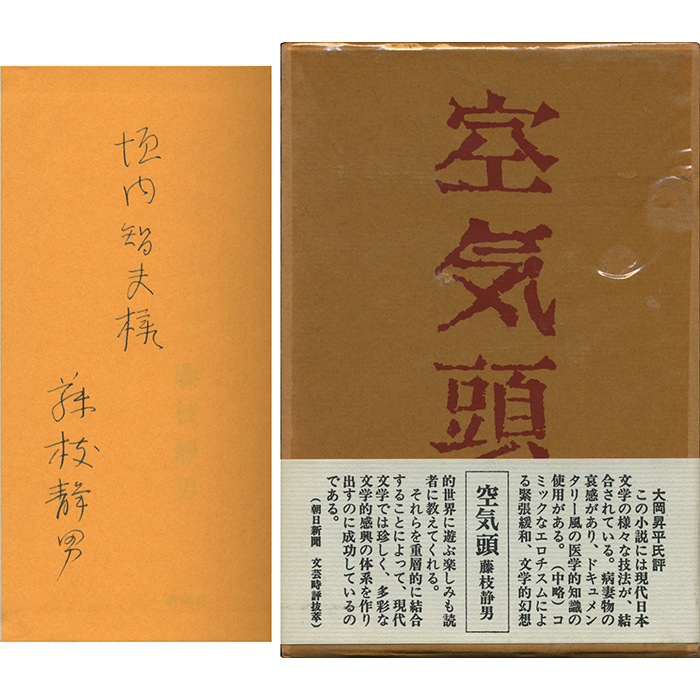 垣内智夫様
藤枝静男
空気頭
大岡昇平氏評
この小説には現代日本
文学の様々な技法が、結
合されている。病妻物の
哀感があり、ドキュメン
タリー風の医学的知識の
使用がある。(中略)コ
ミックなエロチスムによ
る緊張緩和、文学的幻想
空気頭 藤枝静男
的世界に遊ぶ楽しみも読
者に教えてくれる。
それらを重層的に結合
することによって、現代
文学では珍しく、多彩な
文学的感興の体系を作り
出すのに成功しているの
である。
(朝日新聞 文芸時評抜萃)